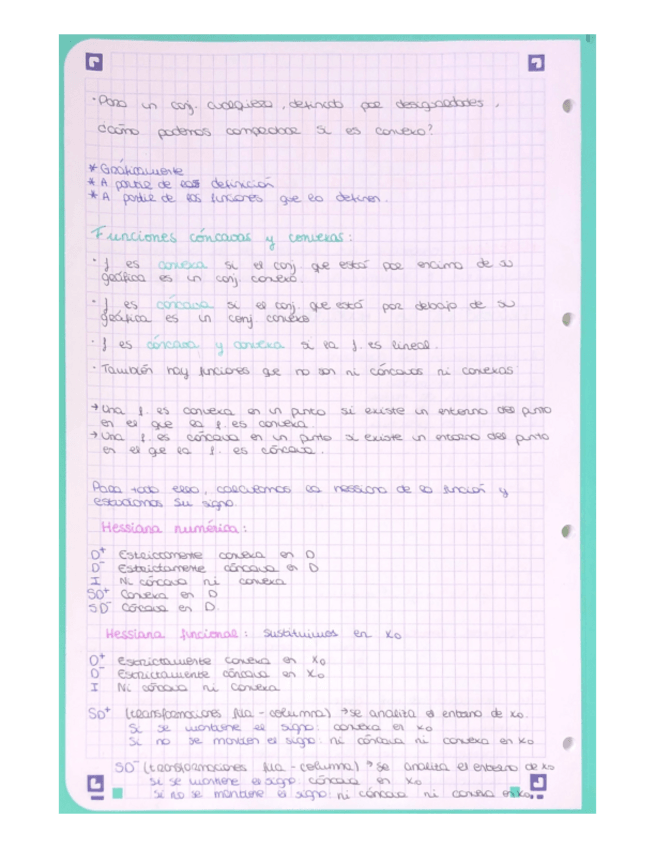 · Para un conj. cualquiera, definido por desigualdades,
¿cómo podemos comprobar si es convexo?
* Gráficamente
* A partir de las definición
* A partir de las funciones que lo definen.
Funciones cóncavas y convexas:
· f es convexa si el conj que está por encima de su
gráfica es un conj. convexo.
· f es cóncava si el conj. que está por debajo de su
gráfica es un conj. convexo
· f es cóncava y convexa si la f. es lineal.
· También hay funciones que no son ni cóncavas ni convexas
→ Una f. es convexa en un punto si existe un entorno del punto
en el que la f. es convexa.
→ Una f. es cóncava en un punto si existe un entorno del punto
en el que la f. es cóncava.
Para todo esto, calculamos la hessiana de la función y
estudiamos su signo.
Hessiana numérica:
D⁺ Estrictamente convexa en D
D⁻ Estrictamente cóncava en D
I Ni cóncava ni convexa
SD⁺ Convexa en D
SD⁻ Cóncava en D.
Hessiana funcional: Sustituimos en x₀
D⁺ Estrictamente convexa en x₀
D⁻ Estrictamente cóncava en x₀
I Ni cóncava ni convexa
SD⁺ (transformaciones fila - columna) → se analiza el entorno de x₀.
Si se mantiene el signo: convexa en x₀
Si no se mantiene el signo: ni cóncava ni convexa en x₀
SD⁻ (transformaciones fila - columna) → se analiza el entorno de x₀
Si se mantiene el signo: cóncava en x₀
Si no se mantiene el signo: ni cóncava ni convexa en x₀.